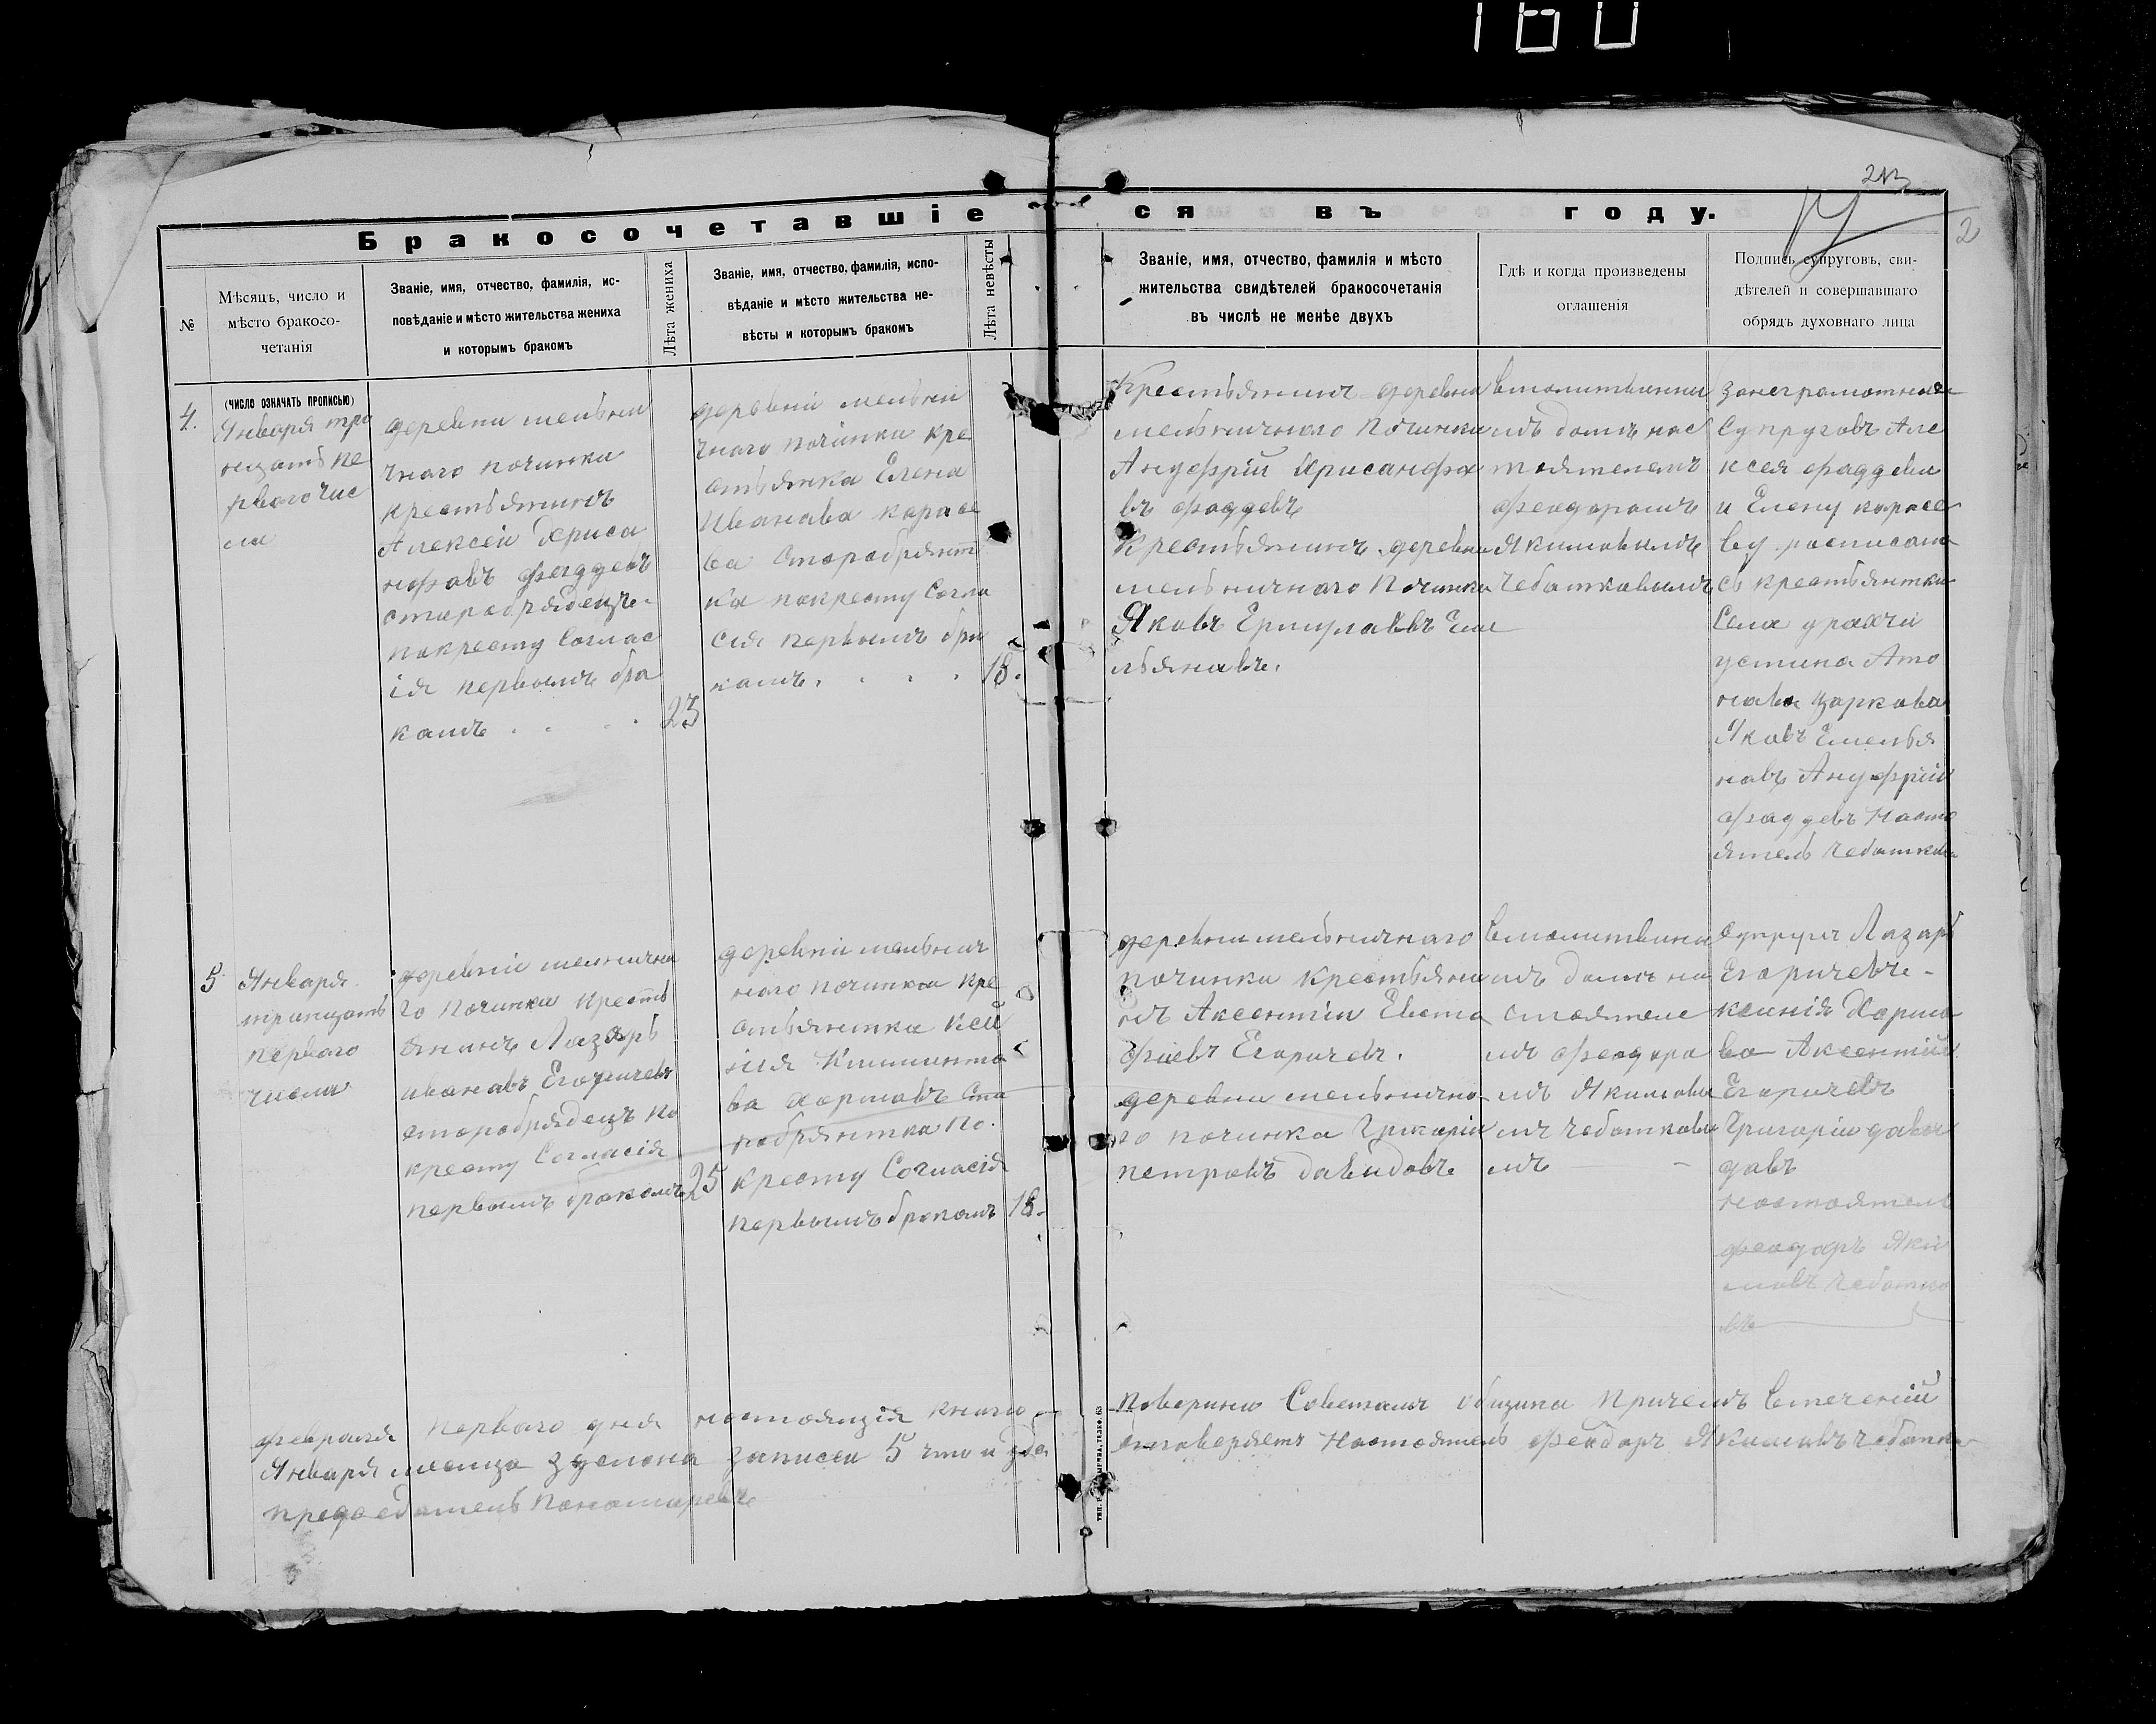 160
213
2
Бракосочетавшіеся въ году.
№
Мѣсяцъ, число и
мѣсто бракосо-
четанія
Званіе, имя, отчество, фамилія, ис-
повѣданіе и мѣсто жительства жениха
и которымъ бракомъ
Лѣта жениха
Званіе, имя, отчество, фамилія, испо-
вѣданіе и мѣсто жительства не-
вѣсты и которымъ бракомъ
Лѣта невѣсты
Званіе, имя, отчество, фамилія и мѣсто
жительства свидѣтелей бракосочетанія
въ числѣ не менѣе двухъ
Гдѣ и когда произведены
оглашенія
Подпись супруговъ, сви-
дѣтелей и совершавшаго
обрядъ духовнаго лица
(ЧИСЛО ОЗНАЧАТЬ ПРОПИСЬЮ)
4.
Января три
нцать пе
рваго чис
ла
деревни мельни
чнаго починка
крестьянинъ
Алексей Хриса
нфавъ Фаддевъ
старобрядецъ
покресту Соглас
ія первымъ бра
камъ
23
деревни мельни
чнаго починка кре
стьянка Елена
Иванава карасе
ва старобрянт
ка покресту Согла
сия первымъ бра
камъ
18.
Крестьянинъ деревни
мельничнаго Починка
Ануфрій Хрисанфа
въ Фаддевъ
Крестьянинъ деревни
мельничнаго Починка
Яковъ Ермулаевъ Еме
льянавъ.
вмолитвинна
мъ домъ нас
тоятелемъ
Феадорамъ
Якимовымъ
Чебаткавымъ
Занеграмотных
Супруговъ Але
ксея Фаддева
и Елену карасе
ву росписала
сь крестьянтка
Села урахчи
устина Анто
нова Царкова
Яковъ Емелья
навъ Ануфрій
Фаддевъ Насто
ятель Чебатков
5
Января
тринцать
перваго
числа
деревни мелнична
го починка Кресть
янинъ Лазарь
Иванавъ Егоричевъ
старобрядецъ по
кресту Согласія
первымъ бракомъ
25
деревни мельнич
наго починка Кре
стьянтка Ксе
нія Климинта
ва Хармавъ Ста
робрянтка По
кресту Согласія
первымъ бракомъ
18.
деревни мельничнаго
починка Крестьяни
нъ Аксентіи Евста
фиевъ Егаричевъ.
деревни мельнично
го починка Григарій
петровъ Давидовъ
вмолитвинна
мъ домъ на
стоятеле
мъ Феадора
мъ Якимовы
мъ Чебаткавы
мъ
Супругъ Лазарь
Егаричевъ
Ксинія Харма
ва Аксентій
Егаричевъ
Григарій давы
давъ
настоятель
Феадаръ Яки
мавъ Чебатко
въ
Февраля Перваго дня настоящія книга поверина Саветамъ общины Причемъ втечении
Января месяца зделана записеи 5 что и удостоверяетъ Настоятель Феадаръ Якимовъ Чебатков
председатель Пономаревъ